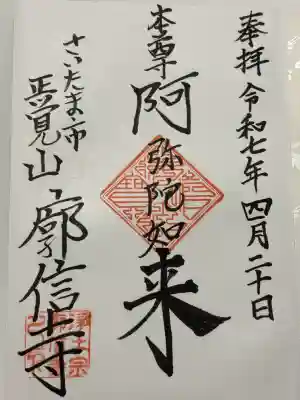 奉拝 令和七年四月二十日
本尊 阿弥陀如来
さいたま市
正覚山 廓信寺